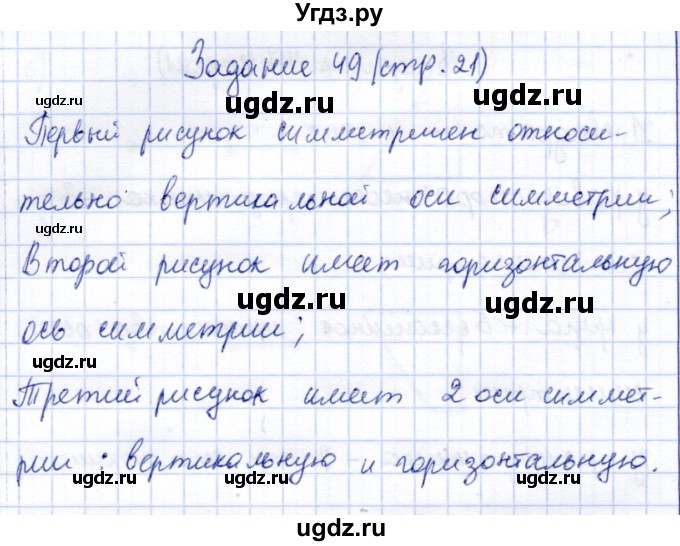 Угдз.ру
Задание 49 (стр. 21)
ugdz.ru ugdz.ru ugdz.ru
Первый рисунок симметричен относи-
ugdz.ru ugdz.ru
тельно вертикальной оси симметрии;
ugdz.ru ugdz.ru
Второй рисунок имеет горизонтальную
ugdz.ru ugdz.ru
ось симметрии;
ugdz.ru ugdz.ru
Третий рисунок имеет 2 оси симмет-
ugdz.ru ugdz.ru
рии: вертикальную и горизонтальную.
ugdz.ru ugdz.ru
ugdz.ru